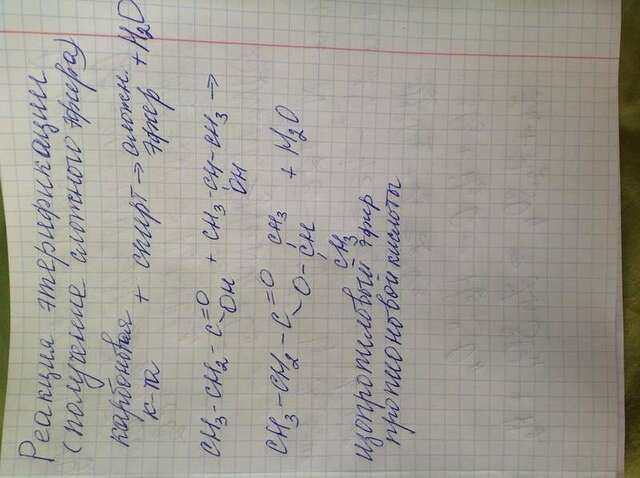 Реакция этерификации
(получение сложного эфира)
карбоновая к-та + спирт → сложн. эфир + H₂O
CH₃-CH₂-C=O
OH
+ CH₃-CH-CH₃ →
OH
CH₃-CH₂-C=O
O-CH
CH₃
CH₃
+ H₂O
изопропиловый эфир
пропионовой кислоты